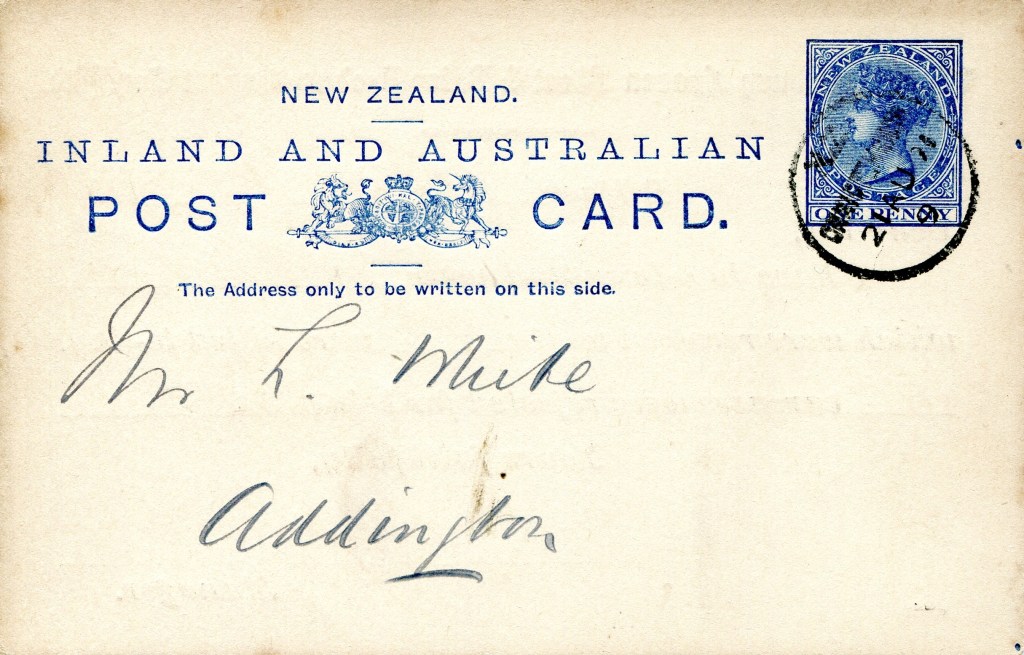 NEW ZEALAND
POSTAGE
ONE PENNY
NEW ZEALAND.
INLAND AND AUSTRALIAN
POST CARD.
The Address only to be written on this side.
Mr L. White
Addington